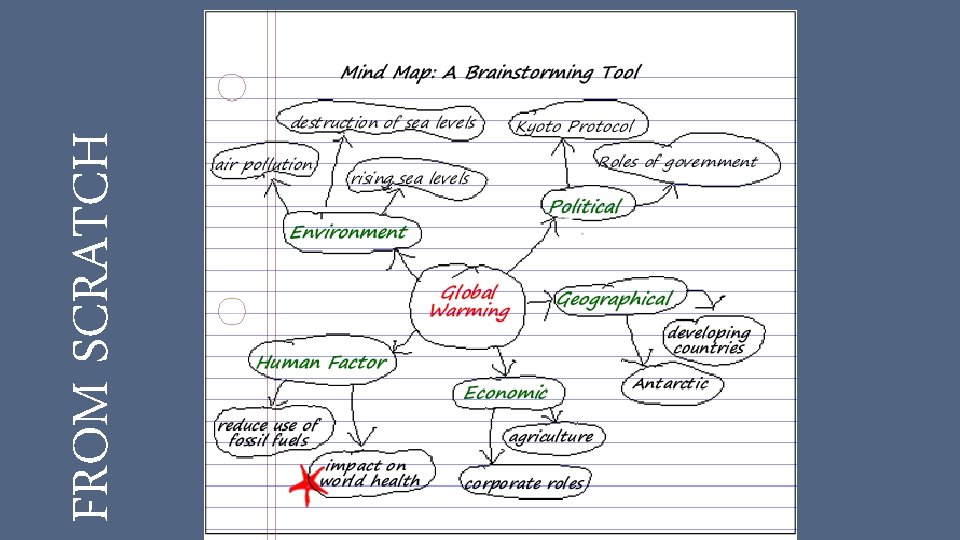 FROM SCRATCH
Mind Map: A Brainstorming Tool
destruction of sea levels
Kyoto Protocol
air pollution
rising sea levels
Roles of government
Political
Environment
Global
Warming
Geographical
developing
countries
Human Factor
Economic
Antarctic
reduce use of
fossil fuels
agriculture
impact on
world health
corporate roles